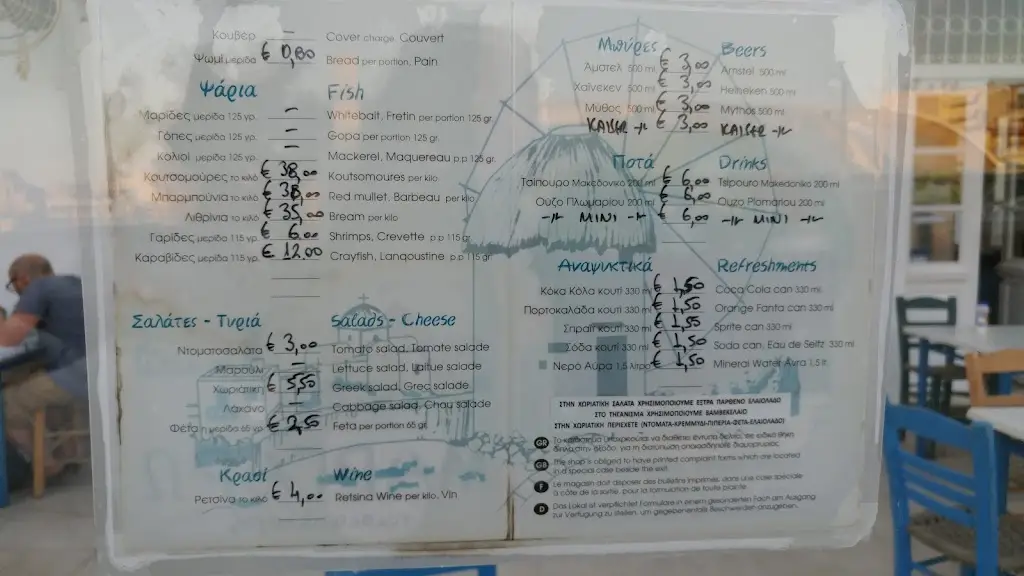 Κουβέρ — Cover charge, Couvert
Ψωμί μερίδα € 0,80 Bread per portion, Pain
Ψάρια Fish
Μαρίδες μερίδα 125 γρ. — Whitebait, Fretin per portion 125 gr.
Γόπες μερίδα 125 γρ. — Gopa per portion 125 gr.
Κολιοί μερίδα 125 γρ. — Mackerel, Maquereau p.p 125 gr.
Κουτσομούρες το κιλό € 38,00 Koutsomoures per kilo
Μπαρμπούνια το κιλό € 38,00 Red mullet, Barbeau per kilo
Λιθρίνια το κιλό € 35,00 Bream per kilo
Γαρίδες μερίδα 115 γρ. € 6,00 Shrimps, Crevette p.p 115 gr.
Καραβίδες μερίδα 115 γρ. € 12,00 Crayfish, Langoustine p.p 115 gr.
Σαλάτες - Τυριά Salads - Cheese
Ντοματοσαλάτα € 3,00 Tomato salad, Tomate salade
Μαρούλι — Lettuce salad, Laitue salade
Χωριάτικη € 5,50 Greek salad, Grec salade
Λάχανο Cabbage salad, Chou salade
Φέτα η μερίδα 65 γρ. € Feta per portion 65 gr.
Κρασί Wine
Ρετσίνα το κιλό € 4,00 Retsina Wine per kilo, Vin
Μπύρες Beers
Άμστελ 500 ml € 3,00 Amstel 500 ml
Χαίνεκεν 500 ml € 3,00 Heineken 500 ml
Μύθος 500 ml € 3,00 Mythos 500 ml
KAISER -//- € 3,00 KAISER -//-
Ποτά Drinks
Τσίπουρο Μακεδονικό 200 ml € 6,00 Tsipouro Makedoniko 200 ml
Ούζο Πλωμαρίου 200 ml € 6,00 Ouzo Plomariou 200 ml
-//- MINI -//- € 6,00 -//- MINI -//-
Αναψυκτικά Refreshments
Κόκα Κόλα κουτί 330 ml € 1,50 Coca Cola can 330 ml
Πορτοκαλάδα κουτί 330 ml € 1,50 Orange Fanta can 330 ml
Σπράιτ κουτί 330 ml € 1,50 Sprite can 330 ml
Σόδα κουτί 330 ml € 1,50 Soda can, Eau de Seltz 330 ml
Νερό Αύρα 1,5 λίτρο € 1,50 Mineral Water Avra 1,5 lt
ΣΤΗΝ ΧΩΡΙΑΤΙΚΗ ΣΑΛΑΤΑ ΧΡΗΣΙΜΟΠΟΙΟΥΜΕ ΕΞΤΡΑ ΠΑΡΘΕΝΟ ΕΛΑΙΟΛΑΔΟ
ΣΤΟ ΤΗΓΑΝΙΣΜΑ ΧΡΗΣΙΜΟΠΟΙΟΥΜΕ ΒΑΜΒΑΚΕΛΑΙΟ
ΣΤΗΝ ΧΩΡΙΑΤΙΚΗ ΠΕΡΙΕΧΕΤΕ (ΝΤΟΜΑΤΑ-ΚΡΕΜΜΥΔΙ-ΠΙΠΕΡΙΑ-ΦΕΤΑ-ΕΛΑΙΟΛΑΔΟ)
GR Το κατάστημα υποχρεούται να διαθέτει έντυπα δελτία, σε ειδική θήκη
δίπλα στην έξοδο, για τη διατύπωση οποιασδήποτε διαμαρτυρίας
GB The shop is obliged to have printed complaint forms which are located
in a special case beside the exit
F Le magasin doit disposer des bulletins imprimés, dans une case spéciale
à côte de la sortie, pour la formulation de toute plainte
D Das Lokal ist verpflichtet Formulare in einem gesonderten Fach am Ausgang
zur Verfügung zu stellen, um gegebenenfalls Beschwerden anzugeben.